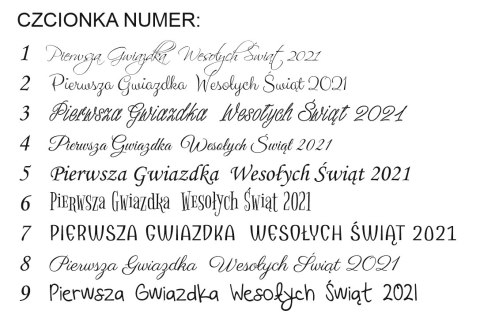 CZCIONKA NUMER:
1 Pierwsza Gwiazdka Wesołych Świąt 2021
2 Pierwsza Gwiazdka Wesołych Świąt 2021
3 Pierwsza Gwiazdka Wesołych Świąt 2021
4 Pierwsza Gwiazdka Wesołych Świąt 2021
5 Pierwsza Gwiazdka Wesołych Świąt 2021
6 Pierwsza Gwiazdka Wesołych Świąt 2021
7 PIERWSZA GWIAZDKA WESOŁYCH ŚWIĄT 2021
8 Pierwsza Gwiazdka Wesołych Świąt 2021
9 Pierwsza Gwiazdka Wesołych Świąt 2021